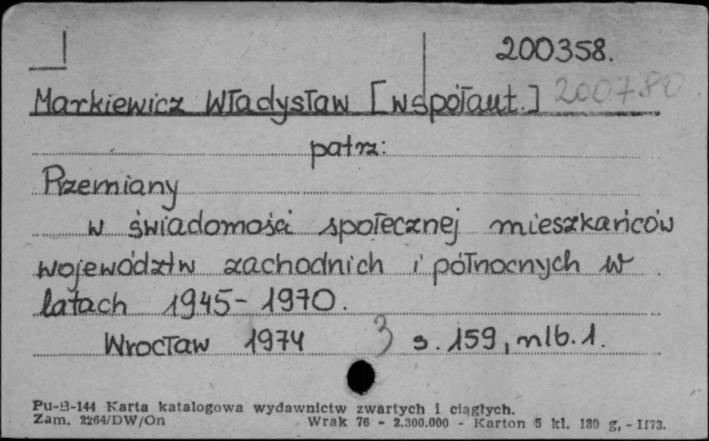 200358.
Markiewicz Władysław [współaut.] 200780
patrz:
Przemiany
w świadomości społecznej mieszkańców
województw zachodnich i północnych w
latach 1945-1970.
Wrocław 1974 3 s. 159, nlb. 1.
Pu-B-144 Karta katalogowa wydawnictw zwartych i ciągłych.
Zam. 2264/DW/On Wrak 76 - 2.300.000 - Karton 5 kl. 180 g, - 1173.